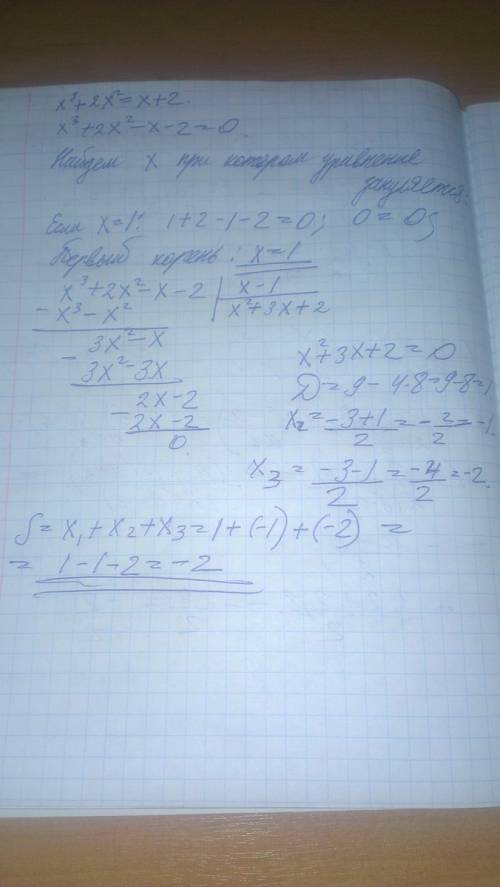 x³+2x²=x+2.
x³+2x²-x-2=0.
Найдем x при котором уравнение
зануляется:
Если x=1: 1+2-1-2=0; 0=0;
Первый корень: x=1
x³+2x²-x-2 | x-1
- x³-x² | x²+3x+2
- 3x²-x
3x²-3x
- 2x-2
2x-2
0
x²+3x+2=0
D=9-4·8=9-8=1
x₂=(-3+1)/2=-2/2=-1.
x₃=(-3-1)/2=-4/2=-2.
S=x₁+x₂+x₃=1+(-1)+(-2)=
= 1-1-2=-2